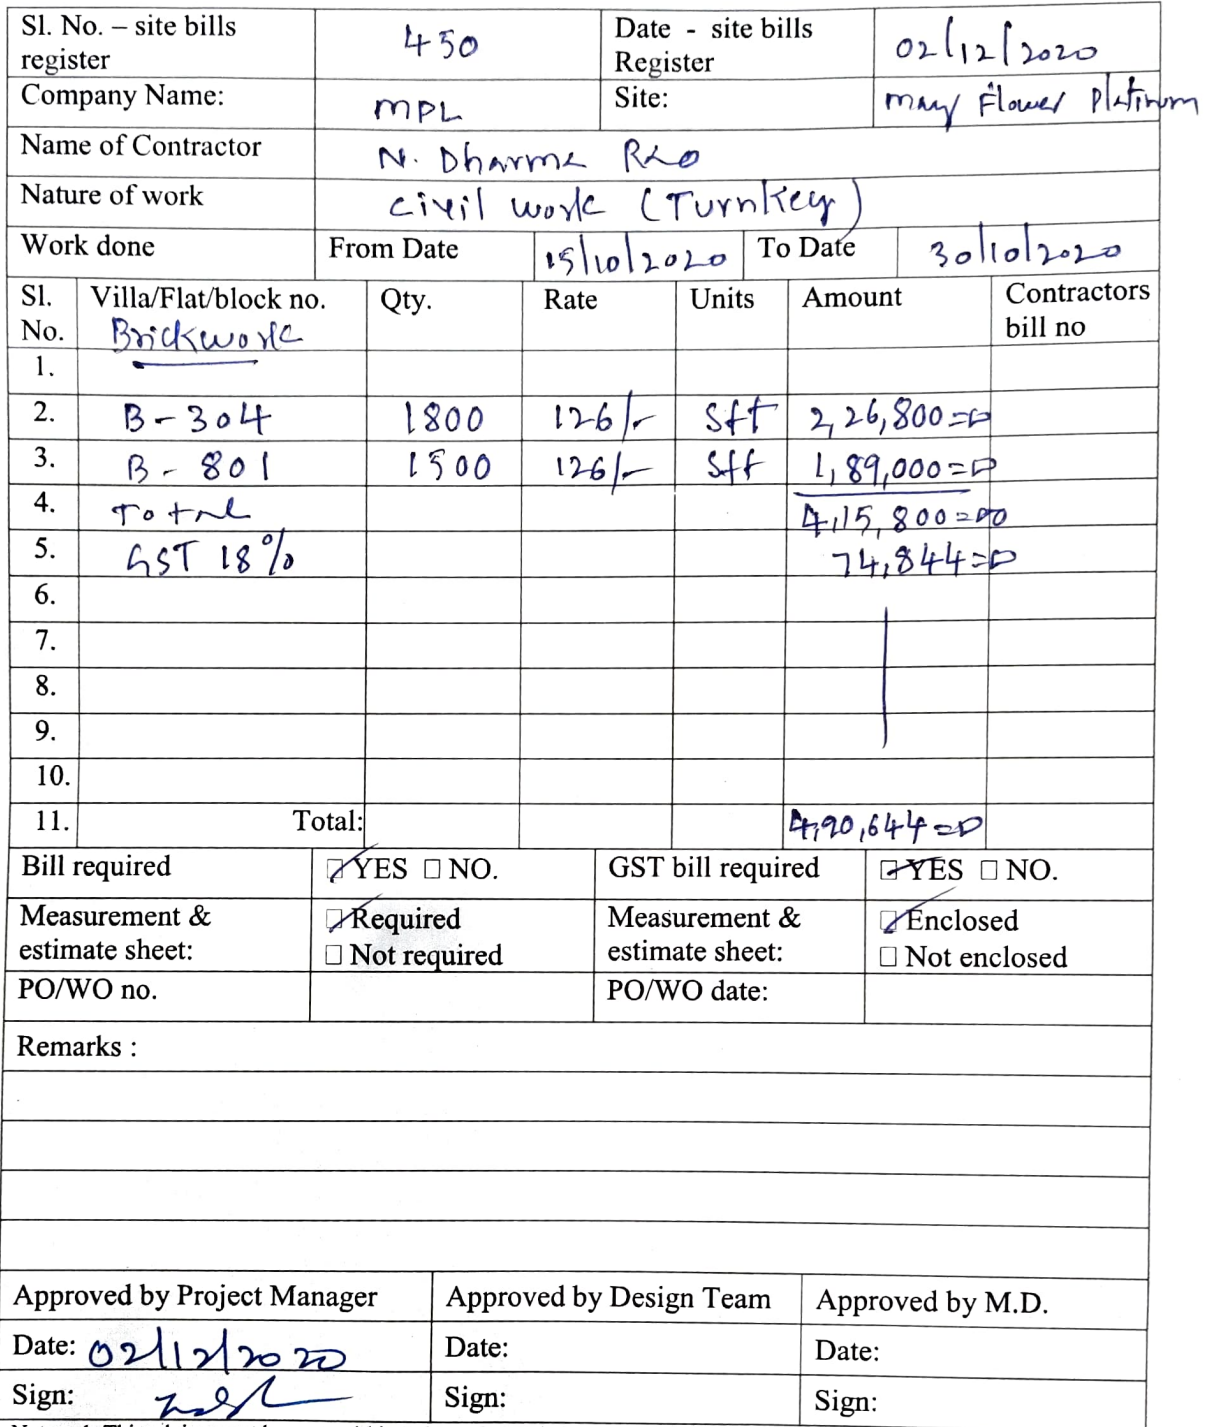 Sl. No. – site bills register 450 Date - site bills Register 02/12/2020
Company Name: MPL Site: May Flower Platinum
Name of Contractor N. Dharma Rao
Nature of work Civil work (Turnkey)
Work done From Date 15/10/2020 To Date 30/10/2020
Sl. No. Villa/Flat/block no. Qty. Rate Units Amount Contractors bill no
Brickwork
1.
2. B-304 1800 126/- sft 2,26,800=0
3. B-801 1500 126/- sft 1,89,000=0
4. Total 4,15,800=00
5. GST 18% 74,844=0
6.
7.
8.
9.
10.
11. Total: 4,90,644=0
Bill required ☑ YES ☐ NO. GST bill required ☑ YES ☐ NO.
Measurement & estimate sheet: ☑ Required Measurement & estimate sheet: ☑ Enclosed
☐ Not required ☐ Not enclosed
PO/WO no. PO/WO date:
Remarks :
Approved by Project Manager Approved by Design Team Approved by M.D.
Date: 02/12/2020 Date: Date:
Sign: Sign: Sign: